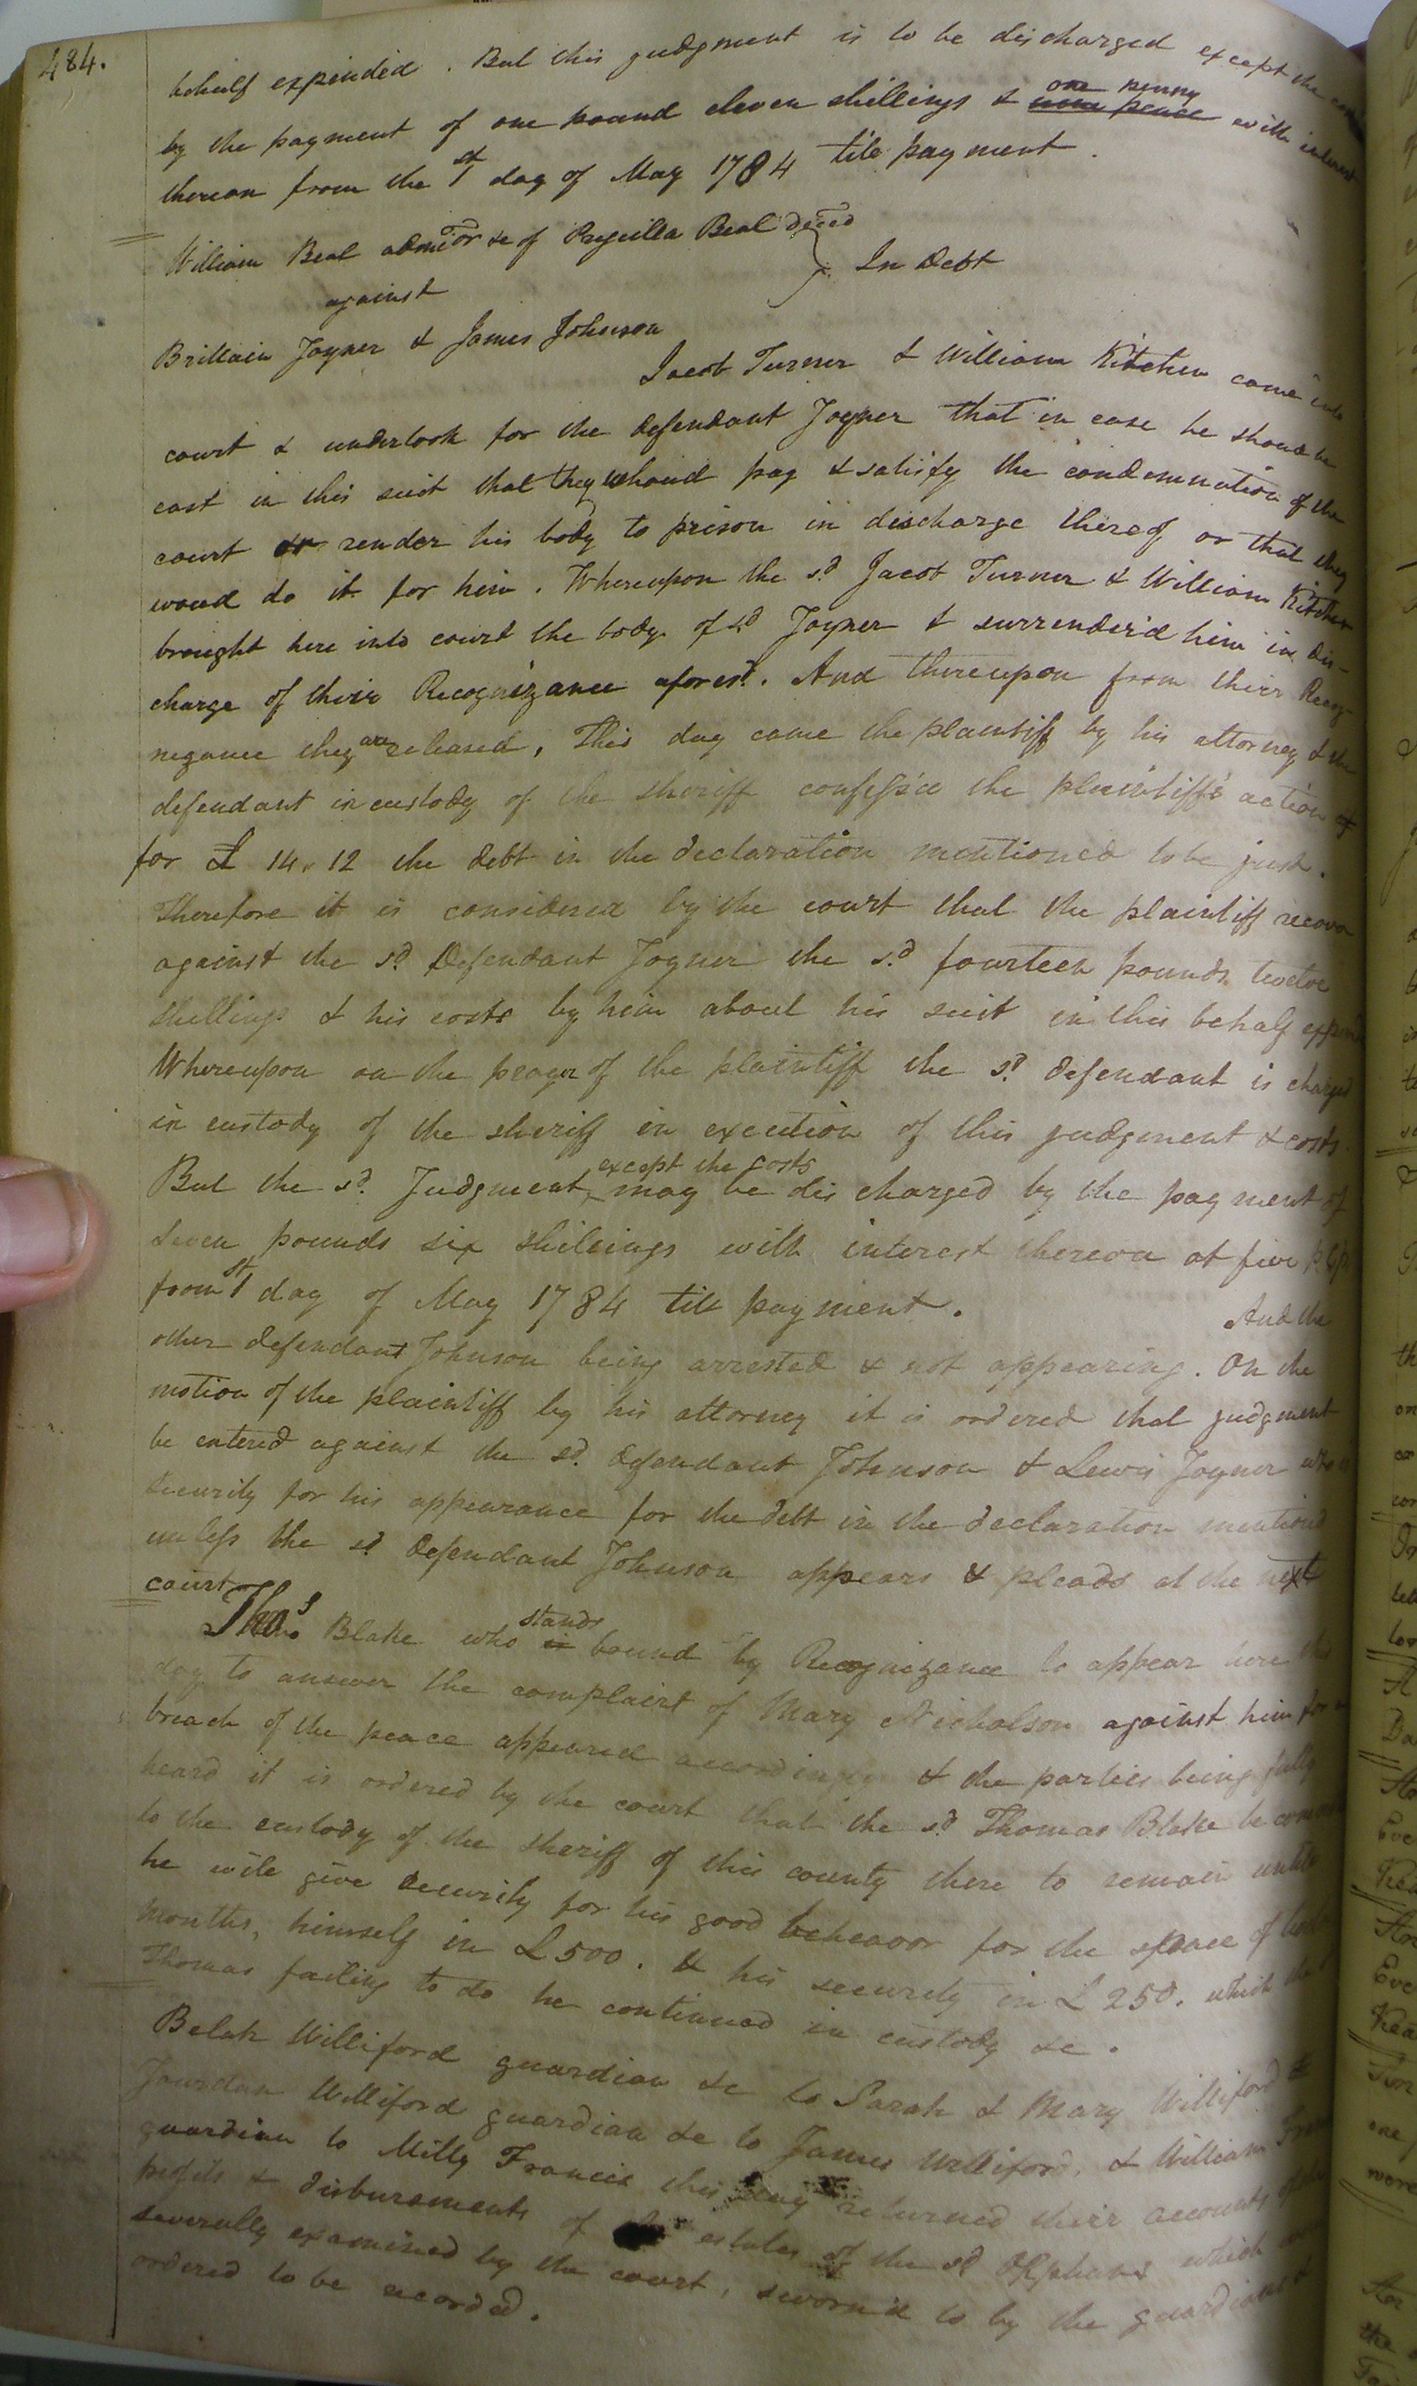 484.
behalf expended. But this judgment is to be discharged except the
by the payment of one pound eleven shillings & one penny with interest
thereon from the 1st day of May 1784 till payment.
William Beal admor &c of Prescilla Beal deced
In Debt
against
Brittain Joyner & James Johnson
Jacob Turner & William Kitchen came into
court & undertook for the defendant Joyner that in case he shoud be
cast in this suit that they shoud pay & satisfy the condemnation of the
court or render his body to prison in discharge thereof or that they
woud do it for him. Whereupon the sd. Jacob Turner & William Kitchen
brought here into court the body of sd Joyner & surrender'd him in dis-
charge of their Recognizance aforesd. And thereupon from their Recog-
nizance they are released. This day came the plaintiff by his attorney & the
defendant in custody of the sheriff confess'd the plaintiff's action
for £ 14.12 the debt in the declaration mentioned to be just.
Therefore it is considered by the court that the plaintiff recover
against the sd. Defendant Joyner the sd. fourteen pounds twelve
shillings & his costs by him about his suit in this behalf
Whereupon on the prayer of the plaintiff the sd. defendant is charged
in custody of the sheriff in execution of this judgment & costs.
But the sd. Judgment except the costs may be discharged by the payment of
Seven pounds six shillings with interest thereon at five
from 1st day of May 1784 till payment. And the
other defendant Johnson being arrested & not appearing. On the
motion of the plaintiff by his attorney it is ordered that judgment
be entered against the sd. defendant Johnson & Lewis Joyner who is
Security for his appearance for the debt in the declaration mentioned
unless the sd Defendant Johnson appears & pleads at the next
court
Thos. Blake who stands bound by Recognizance to appear here this
day to answer the complaint of Mary Nicholson against him for a
breach of the peace appeared accordingly & the parties being fully
heard it is ordered by the court that the sd. Thomas Blake be
to the custody of the sheriff of this county there to remain untill
he will give security for his good behavor for the space of
months, himself in £500. & his security in £250. which the
Thomas failing to do he continued in custody &c.
Belah Williford guardian &c to Sarah & Mary Williford &
Jourdan Williford guardian &c to James Williford, & William
guardian to Milly Francis this day returned their accounts of the
profits & disbursements of estates of the sd Orphans which
severally examined by the court, sworn'd to by the guardians &
ordered to be recorded.